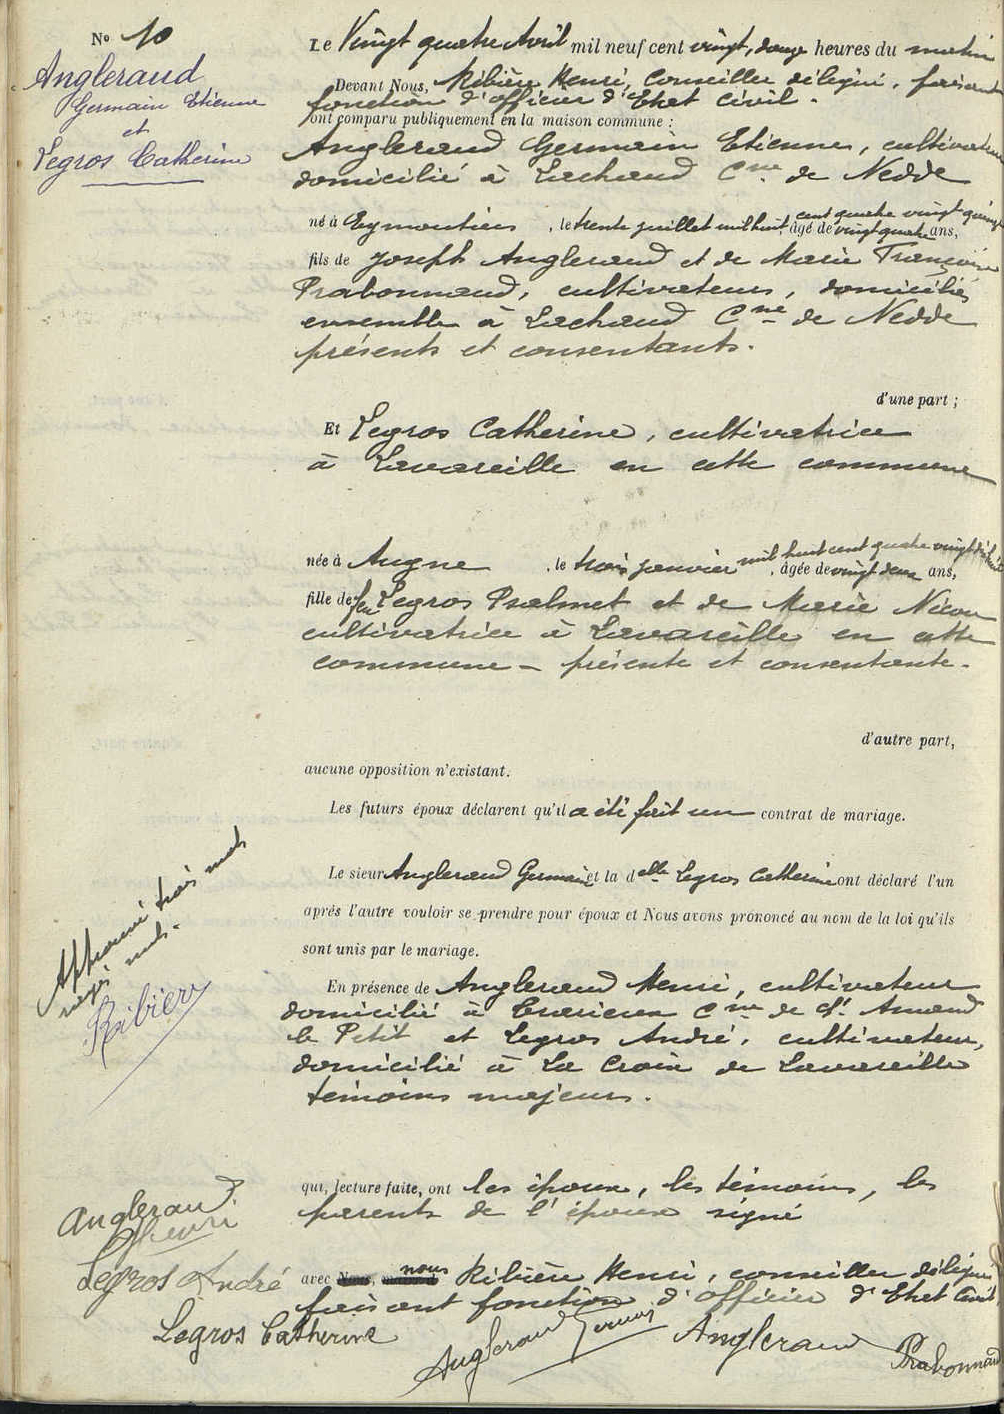 N° 10
Angleraud
Germain Etienne
et
Legros Catherine
Le Vingt quatre Avril mil neuf cent vingt, douze heures du matin
Devant Nous, Ribière Henri, Conseiller délégué, faisant
fonction d'officier d'Etat Civil.
ont comparu publiquement en la maison commune :
Angleraud Germain Etienne, cultivateur
domicilié à Lachaud Cne de Nedde
né à Eymoutiers, le trente juillet mil huit cent quatre vingt quinze, âgé de vingt quatre ans,
fils de Joseph Angleraud et de Marie Françoise
Prabonnaud, cultivateurs, domiciliés
ensemble à Lachaud Cne de Nedde
présents et consentants.
d'une part ;
Et Legros Catherine, cultivatrice
à Lavareille en cette commune
née à Augne, le trois janvier mil huit cent quatre vingt dix huit, âgée de vingt deux ans,
fille de feu Legros Psalmet et de Marie Nicou
cultivatrice à Lavareille en cette
commune – présente et consentante.
d'autre part,
aucune opposition n'existant.
Les futurs époux déclarent qu'il a été fait un contrat de mariage.
Le sieur Angleraud Germain et la delle Legros Catherine ont déclaré l'un
après l'autre vouloir se prendre pour époux et Nous avons prononcé au nom de la loi qu'ils
sont unis par le mariage.
En présence de Angleraud Henri, cultivateur
domicilié à Cne de St Amand
le Petit et Legros André, cultivateur,
domicilié à La Croix de Lavareille
témoins majeurs.
Approuvé trois mots
rayés nuls.
Ribière
qui, lecture faite, ont les époux, les témoins, les
parents de l'époux signé
avec nous Ribière Henri, conseiller délégué
faisant fonction d'officier d'Etat Civil
Angleraud
Henri
Legros André
Legros Catherine
Angleraud Germain
Angleraud
Prabonnaud